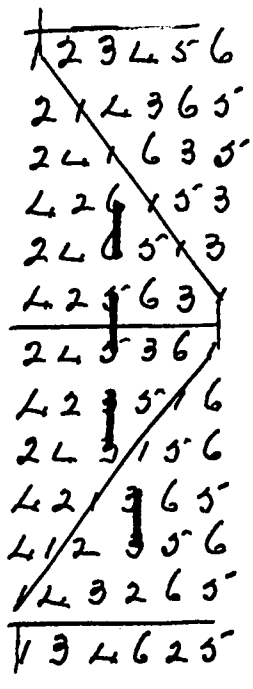 1 2 3 4 5 6
2 1 4 3 6 5
2 4 1 6 3 5
4 2 6 1 5 3
2 4 6 5 1 3
4 2 5 6 3 1
2 4 5 3 6 1
4 2 3 5 1 6
2 4 3 1 5 6
4 2 1 3 6 5
4 1 2 3 5 6
1 4 3 2 6 5
1 3 4 6 2 5